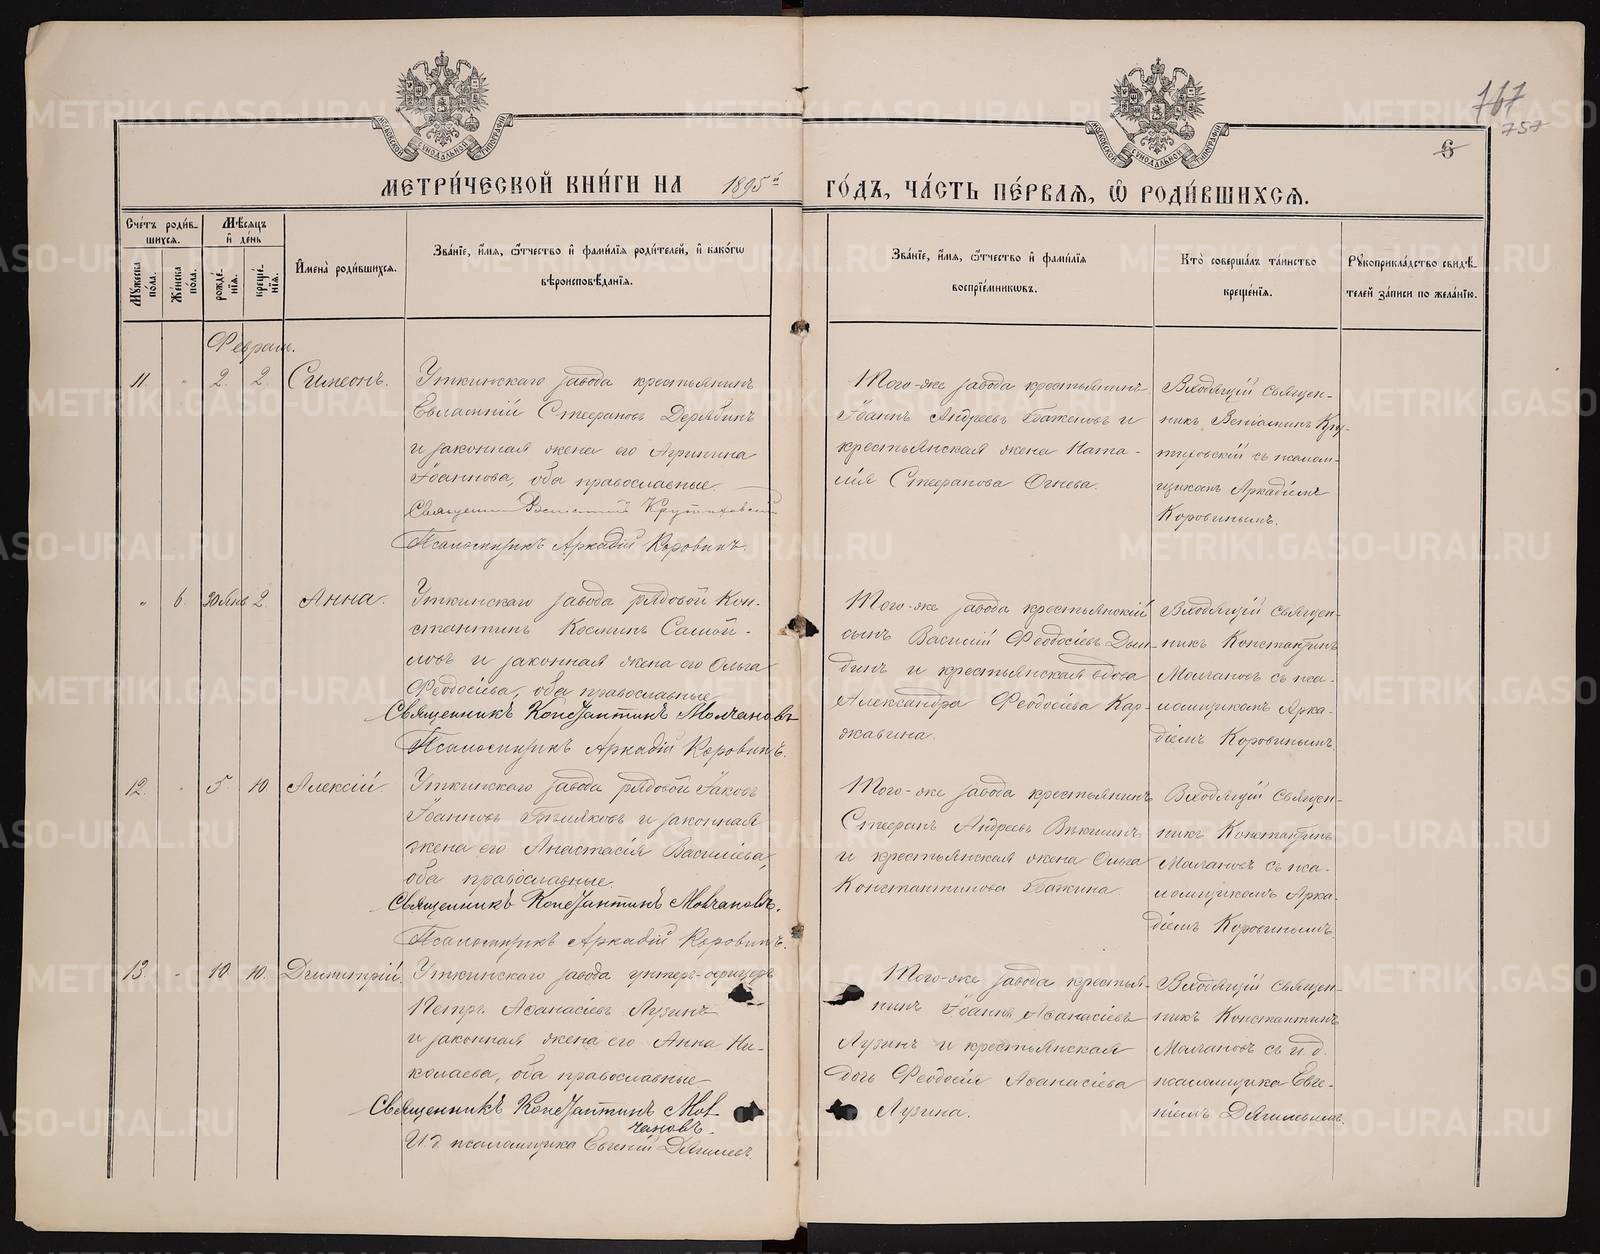 767
757
6
МЕТРИ́ЧЕСКОЙ КНИ́ГИ НА 1895й ГО́ДЪ, ЧА́СТЬ ПЕ́РВАЯ, Ѽ РОДИ́ВШИХСЯ.
Сче́тъ роди́вшихся.
Мꙋжеска по́ла.
Же́нска по́ла.
Мѣ́сяцъ и҆ де́нь
рожде́нїя.
креще́нїя.
И҆мена̀ роди́вшихся.
Зва́нїе, и҆́мя, ѻ҆́тчество и҆ фами́лїя роди́телей, и҆ како́гѡ
вѣроисповѣ́данїя.
Зва́нїе, и҆́мя, ѻ҆́тчество и҆ фами́лїя
воспрїе́мникѡвъ.
Кто̀ соверша́лъ та́инство
креще́нїя.
Рꙋкоприкла́дство свидѣ́-
телей за́писи по жела́нїю.
Февраль.
11. " 2. 2. Симеонъ.
Уткинскаго завода крестьянинъ
Евлампій Стефановъ Дерябинъ
и законная жена его Агрипина
Іоаннова, оба православные.
Священникъ Веніаминъ Крутиховскій
Псаломщикъ Аркадій Коровинъ.
Того-же завода крестьянинъ
Іоаннъ Андреевъ Баженовъ и
крестьянская жена Ната-
лія Стефанова Огнева.
Входящій священ-
никъ Веніаминъ Кру-
тиховскій съ псалом-
щикомъ Аркадіемъ
Коровинымъ.
" 6. 30 Янв. 2. Анна.
Уткинскаго завода рядовой Кон-
стантинъ Косминъ Самой-
ловъ и законная жена его Ольга
Феодосіева, оба православные
Священникъ Константинъ Молчановъ
Псаломщикъ Аркадій Коровинъ.
Того-же завода крестьянскій
сынъ Василій Феодосіевъ
и крестьянская вдова
Александра Феодосіева Кар-
жавина.
Входящій священ-
никъ Константинъ
Молчановъ съ пса-
ломщикомъ Арка-
діемъ Коровинымъ.
12. " 5. 10. Алексій.
Уткинскаго завода рядовой Іаковъ
Іоанновъ и законная
жена его Анастасія Василіева,
оба православные.
Священникъ Константинъ Молчановъ.
Псаломщикъ Аркадій Коровинъ.
Того-же завода крестьянинъ
Стефанъ Андреевъ Вѣкшинъ
и крестьянская жена Ольга
Константинова Бажина.
Входящій священ-
никъ Константинъ
Молчановъ съ пса-
ломщикомъ Арка-
діемъ Коровинымъ.
13. " 10. 10. Димитрій.
Уткинскаго завода унтеръ-офицеръ
Петръ Аѳанасіевъ Лузинъ
и законная жена его Анна Ни-
колаева, оба православные
Священникъ Константинъ Мол-
чановъ.
И д псаломщика Евгеній Дягилевъ.
Того-же завода крестья-
нинъ Іоаннъ Аѳанасіевъ
Лузинъ и крестьянская
дочь Феодосія Аѳанасіева
Лузина.
Входящій священ-
никъ Константинъ
Молчановъ съ и. д.
псаломщика Евге-
ніемъ Дягилевымъ.